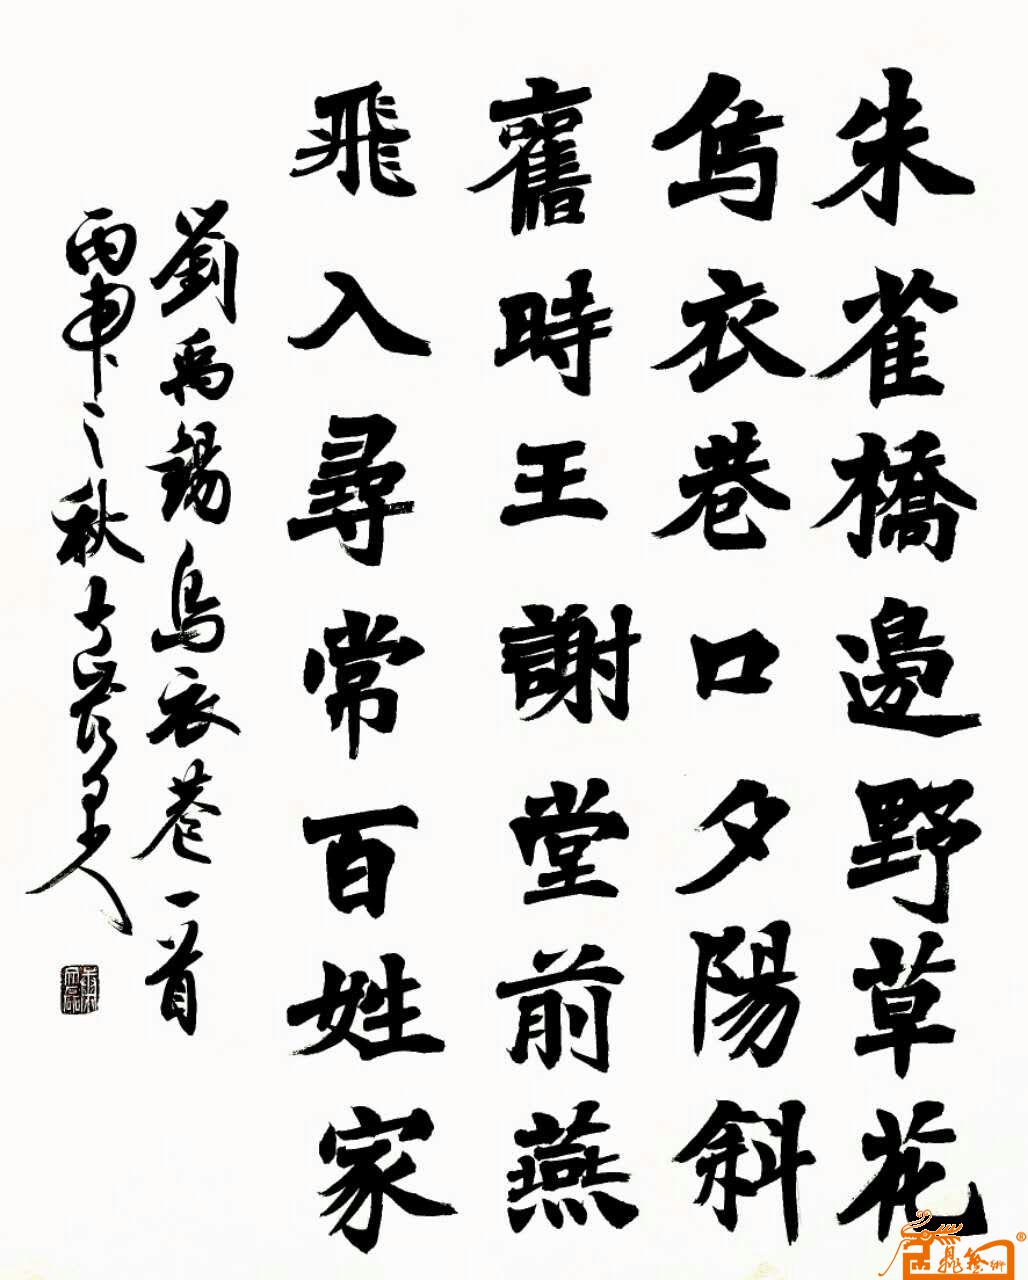 朱雀橋邊野草花
烏衣巷口夕陽斜
舊時王謝堂前燕
飛入尋常百姓家
劉禹錫烏衣巷一首
丙申之秋